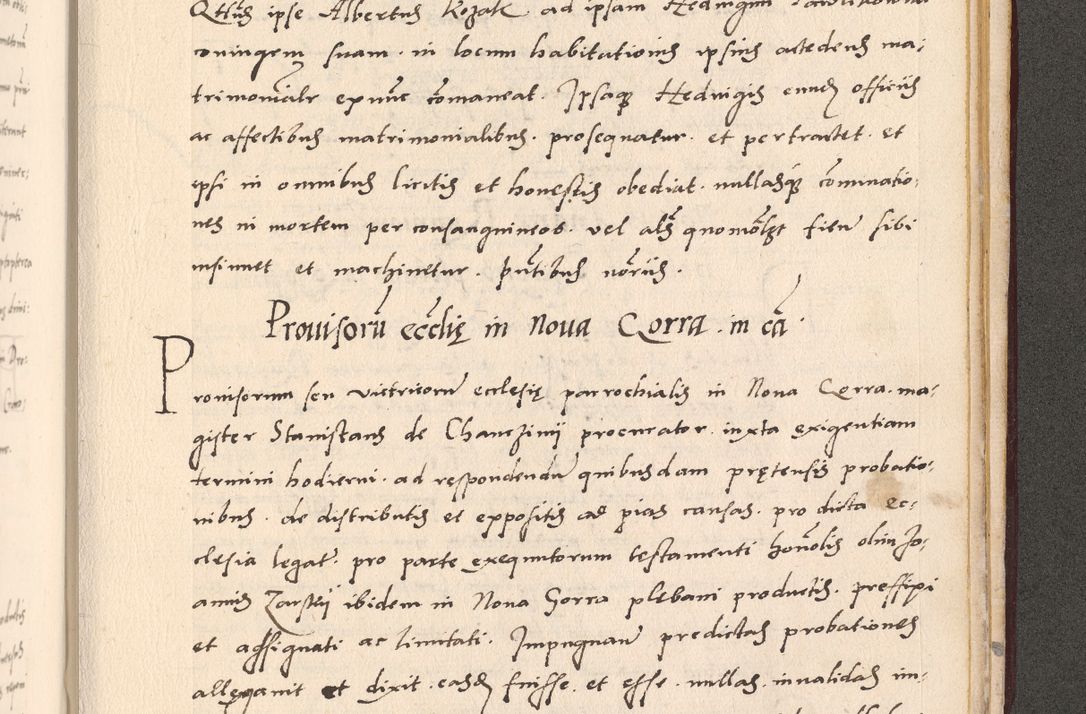 Qtus ipse Albertus Kozak ad ipsam Hedwigim
coniugem suam. in locum habitationis ipsius accedens ma-
trimonialr exnunc comaneat. Ipsaque Hedwigis eundem officiis
ac affectibus matrimonialibus. prosequatur. et pertractet. et
ipsi in omnibus licitis et honestis obediat. nullasque cominatio-
nes in mortem per consanguineos. vel als quomolibet fieri sibi
insinuet et machinetur. pntibus
Prouisorum ecclię in Noua Gorra. in ca.
Prouisorum seu vitricorum ecclesię parrochialis in Noua Gorra. ma-
gister Stanislaus de Chanczinij procurator. iuxta exigentiam
termini hodierni. ad respondendum quibusdam prętensis probatio-
nibus. de distributis et expositis ad pias causas. pro dicta ec-
clesia legat. pro parte exequutorum testamenti honolis olim Jo-
annis ibidem in Noua Gorra plebani productis. preffixi
et assignati ac limitati. Impugnan predictas probationes
allegauit et dixit. easdem fuisse. et esse. nullas. inualidas in-